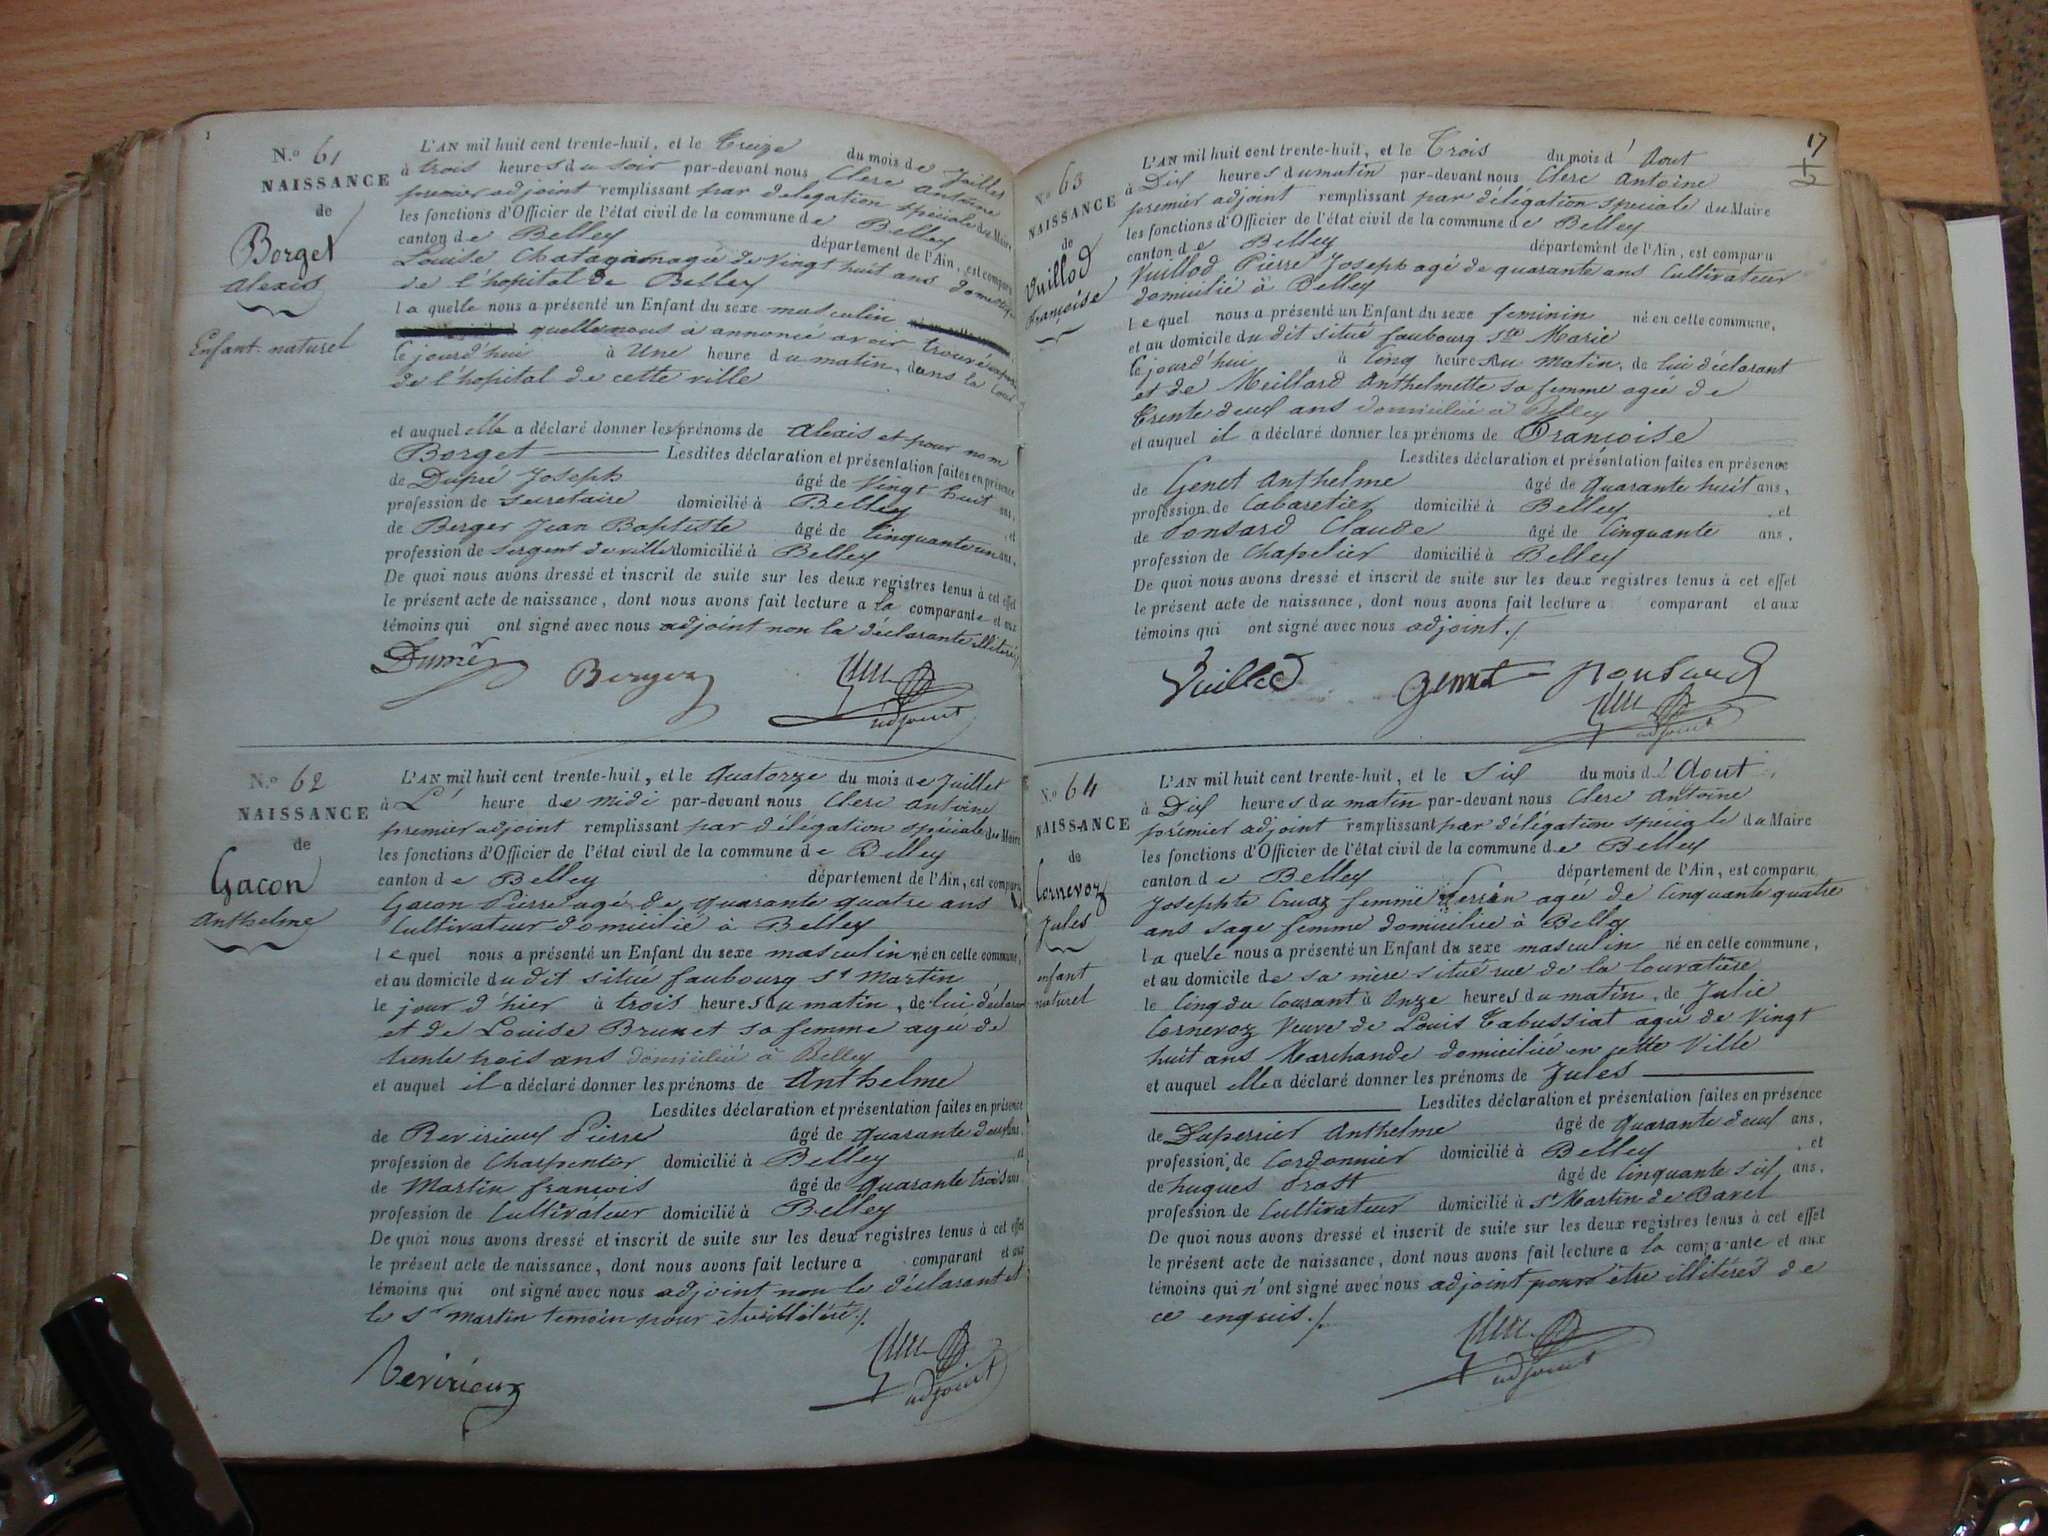 1
N.o 61
NAISSANCE
de
Borget
Alexis
Enfant naturel
L'AN mil huit cent trente-huit, et le Treize du mois de Juillet
à trois heures du soir par-devant nous Clerc Antoine
premier adjoint remplissant par délégation spéciale du Maire
les fonctions d'Officier de l'état civil de la commune de Belley
canton de Belley département de l'Ain, est comparu
Louise agée de Vingt huit ans domestique
de l'hopital de Belley
la quelle nous a présenté un Enfant du sexe masculin
quelle nous a annoncé avoir trouvé
le jourd'hui à Une heure du matin, dans la Cour
de l'hopital de cette ville
et auquel elle a déclaré donner les prénoms de Alexis et pour nom
Borget Lesdites déclaration et présentation faites en présence
de Dupré Joseph âgé de Vingt huit ans,
profession de Secretaire domicilié à Belley et
de Berger Jean Baptiste âgé de Cinquante un ans,
profession de Sergent de ville domicilié à Belley
De quoi nous avons dressé et inscrit de suite sur les deux registres tenus à cet effet
le présent acte de naissance, dont nous avons fait lecture a la comparante et aux
témoins qui ont signé avec nous adjoint non la déclarante illitérée
Berger
adjoint
N.o 62
NAISSANCE
de
Gacon
Anthelme
L'AN mil huit cent trente-huit, et le Quatorze du mois de Juillet
à L' heure de midi par-devant nous Clerc Antoine
premier adjoint remplissant par délégation spéciale du Maire
les fonctions d'Officier de l'état civil de la commune de Belley
canton de Belley département de l'Ain, est comparu
Gacon Pierre agé de quarante quatre ans
Cultivateur domicilié à Belley
lequel nous a présenté un Enfant du sexe masculin né en cette commune,
et au domicile du dit situé faubourg St Martin
le jour d'hier à trois heures du matin, de lui déclarant
et de Louise Brunet sa femme agée de
trente trois ans domiciliée à Belley
et auquel il a déclaré donner les prénoms de Anthelme
Lesdites déclaration et présentation faites en présence
de Revirieux Pierre âgé de quarante deux ans,
profession de Charpentier domicilié à Belley et
de Martin françois âgé de quarante trois ans
profession de Cultivateur domicilié à Belley
De quoi nous avons dressé et inscrit de suite sur les deux registres tenus à cet effet
le présent acte de naissance, dont nous avons fait lecture a comparant et aux
témoins qui ont signé avec nous adjoint non le déclarant et
le Sr Martin temoin pour être illitéré ./.
Revirieux
adjoint
17
N.o 63
NAISSANCE
de
Vuillod
françoise
L'AN mil huit cent trente-huit, et le Trois du mois d'Aout
à Dix heures du matin par-devant nous Clerc Antoine
premier adjoint remplissant par délégation speciale du Maire
les fonctions d'Officier de l'état civil de la commune de Belley
canton de Belley département de l'Ain, est comparu
Vuillod Pierre Joseph agé de quarante ans Cultivateur
domicilié à Belley
lequel nous a présenté un Enfant du sexe feminin né en cette commune,
et au domicile du dit situé faubourg Ste Marie
le jourd'hui à Cinq heures du matin, de lui déclarant
et de Meillard Anthelmette sa femme agée de
trente deux ans domiciliée à Belley
et auquel il a déclaré donner les prénoms de Françoise
Lesdites déclaration et présentation faites en présence
de Genet Anthelme âgé de quarante huit ans,
profession de Cabaretier domicilié à Belley et
de Ponsard Claude âgé de Cinquante ans,
profession de Chapelier domicilié à Belley
De quoi nous avons dressé et inscrit de suite sur les deux registres tenus à cet effet
le présent acte de naissance, dont nous avons fait lecture a comparant et aux
témoins qui ont signé avec nous adjoint ./.
Vuillod Genet Ponsard
adjoint
N.o 64
NAISSANCE
de
Cornevoz
Jules
enfant
naturel
L'AN mil huit cent trente-huit, et le Six du mois d'Aout
à Dix heures du matin par-devant nous Clerc Antoine
premier adjoint remplissant par délégation spéciale du Maire
les fonctions d'Officier de l'état civil de la commune de Belley
canton de Belley département de l'Ain, est comparu
Josephte Cruaz femme agée de Cinquante quatre
ans sage femme domiciliée à Belley
la quelle nous a présenté un Enfant du sexe masculin né en cette commune,
et au domicile de sa mère situé rue de la
le Cinq du Courant à Onze heures du matin, de Julie
Cornevoz Veuve de Louis Tabussiat agée de Vingt
huit ans Marchande domiciliée en cette Ville
et auquel elle a déclaré donner les prénoms de Jules
Lesdites déclaration et présentation faites en présence
de Duperrier Anthelme âgé de quarante deux ans,
profession de Cordonnier domicilié à Belley et
de hugues Prost âgé de Cinquante six ans,
profession de Cultivateur domicilié à St Martin de Bavel
De quoi nous avons dressé et inscrit de suite sur les deux registres tenus à cet effet
le présent acte de naissance, dont nous avons fait lecture a la comparante et aux
témoins qui n'ont signé avec nous adjoint pour être illiterés de
ce enquis ./.
adjoint